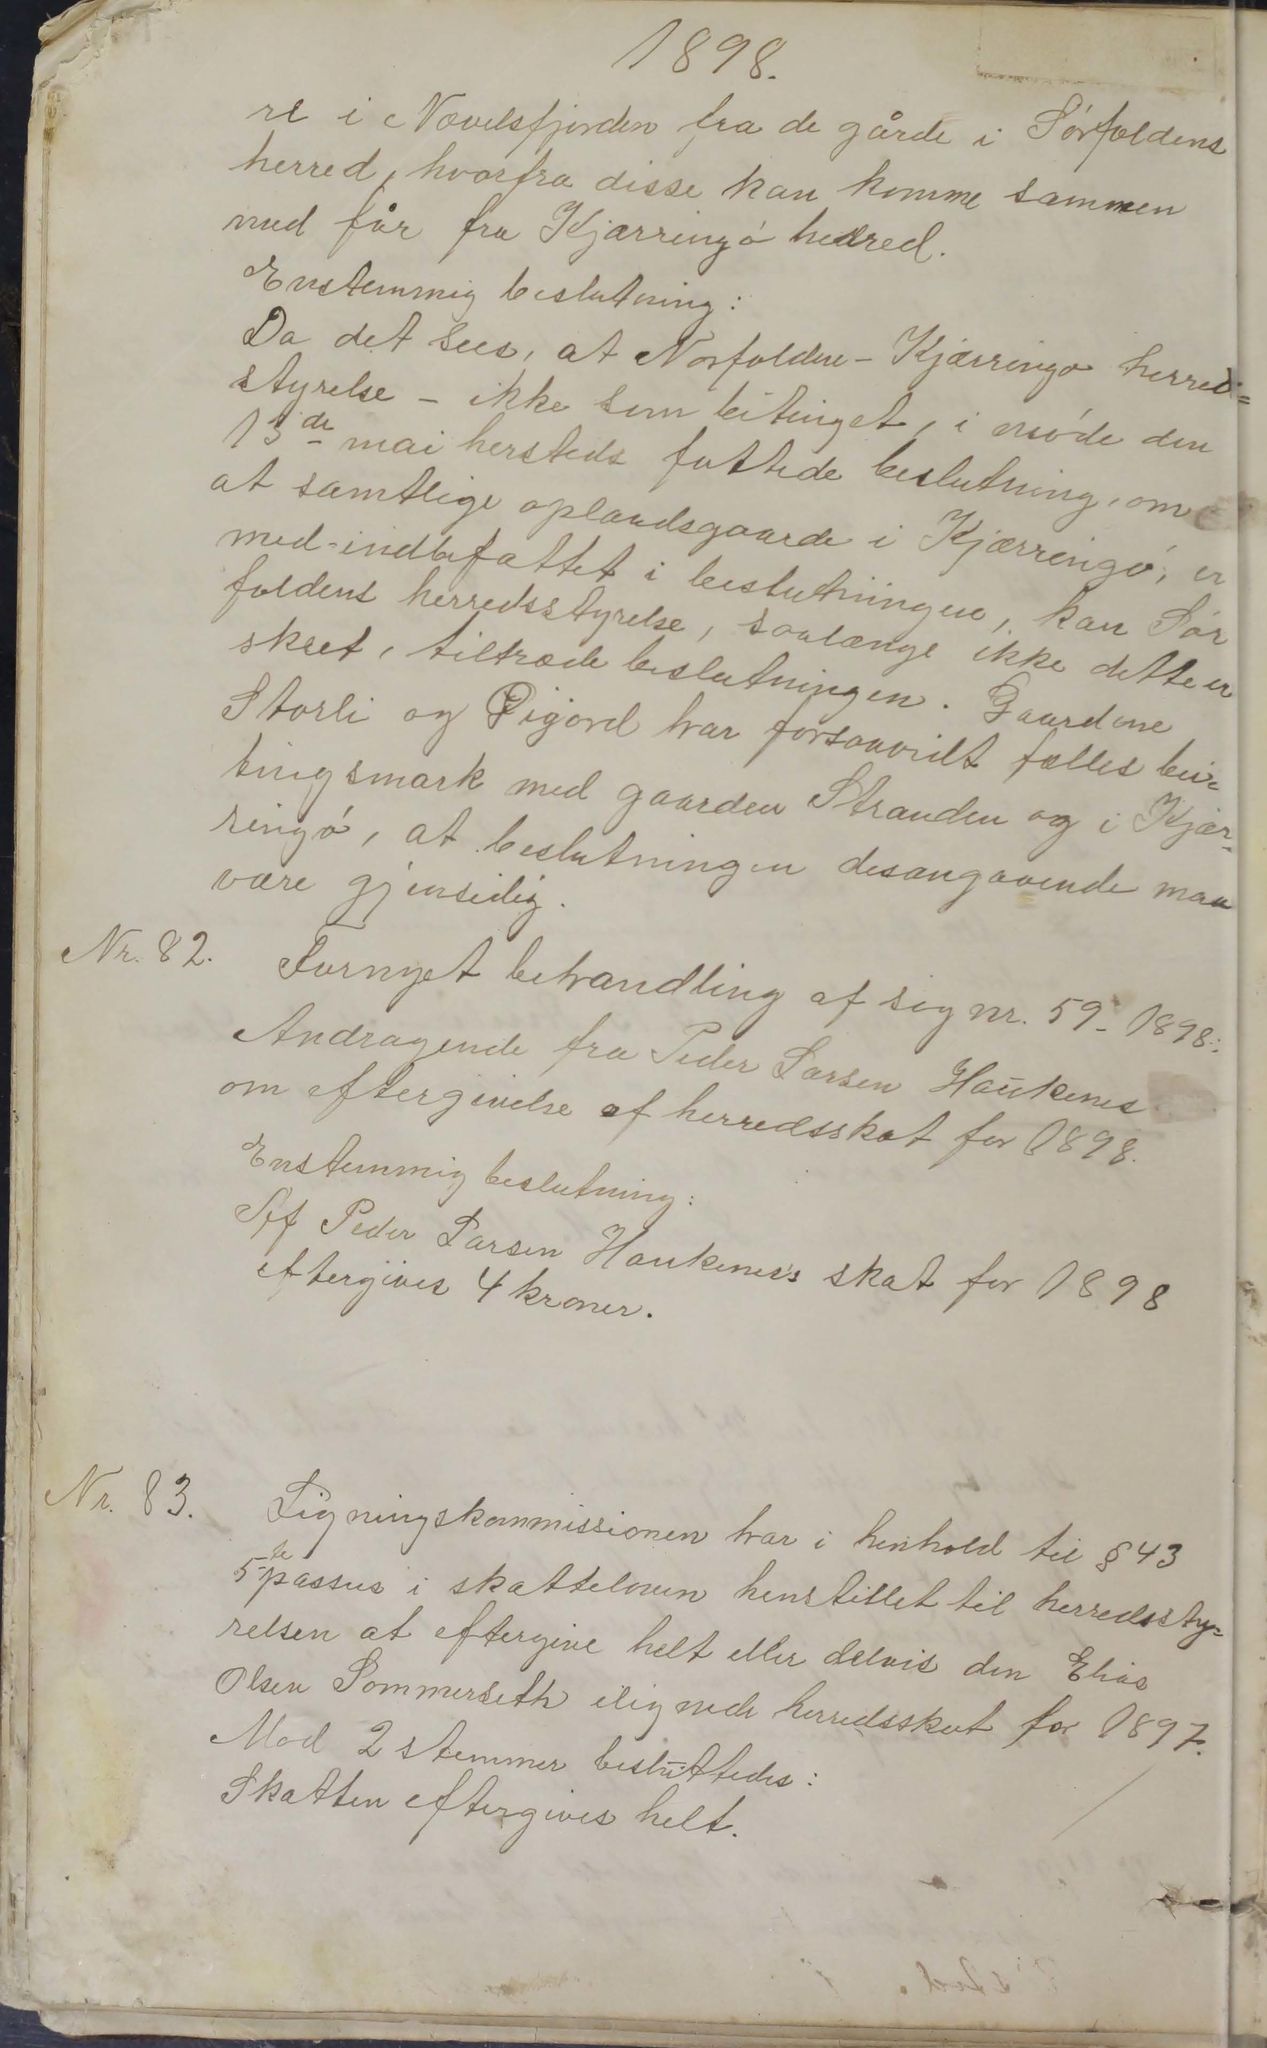 1898.
re i Nævelsfjorden fra de gårde i Sørfoldens
herred, hvorfra disse kan komme sammen
med får fra Kjærringø herred.
Enstemmig beslutning:
Da det sees, at Norfolden-Kjærringø herred=
styrelse - ikke som betinget, i møde den
13de mai hersteds fattede beslutning, om
at samtlige oplandsgaarde i Kjærringø, er
med-indbefattet i beslutningen, kan Sør
foldens herredsstyrelse, saalænge ikke dette er
skeet, tiltræde beslutningen. Gaardene
Storli og Øigord har forsaavidt fælles bei=
tingsmark med gaarden Stranden og i Kjær=
ringø, at beslutningen desangaaende maa
være gjensidig.
Nr. 82. Fornyet behandling af sag nr. 59-1898:
Andragende fra Peder Larsen Haukenes
om eftergivelse af herredsskat for 1898.
Enstemmig beslutning:
Af Peder Larsen Haukenes's skat for 1898
eftergives 4 kroner.
Nr. 83. Ligningskommissionen har i henhold til § 43
5te passus i skatteloven henstillet til herredssty=
relsen at eftergive helt eller delvis den Elias
Olsen Sommerseth ilignede herredsskat for 1897.
Mod 2 stemmer besluttedes:
Skatten eftergives helt.